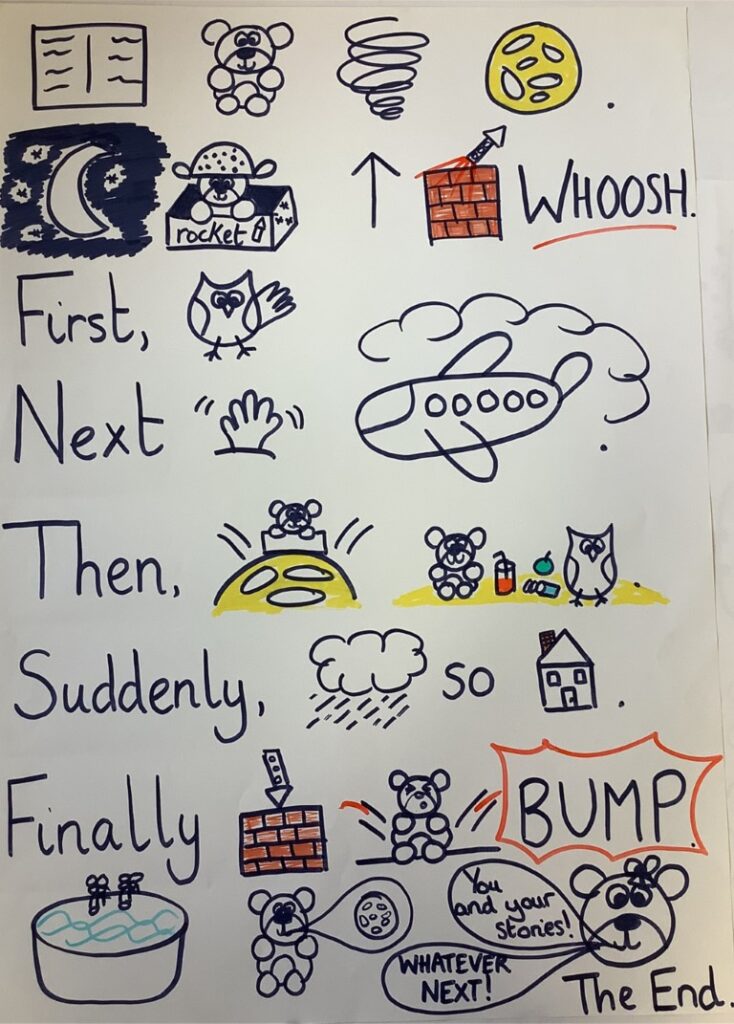 WHOOSH.
rocket
First,
Next
Then,
Suddenly, so
Finally
BUMP.
You
and your
stories!
WHATEVER
NEXT!
The End.